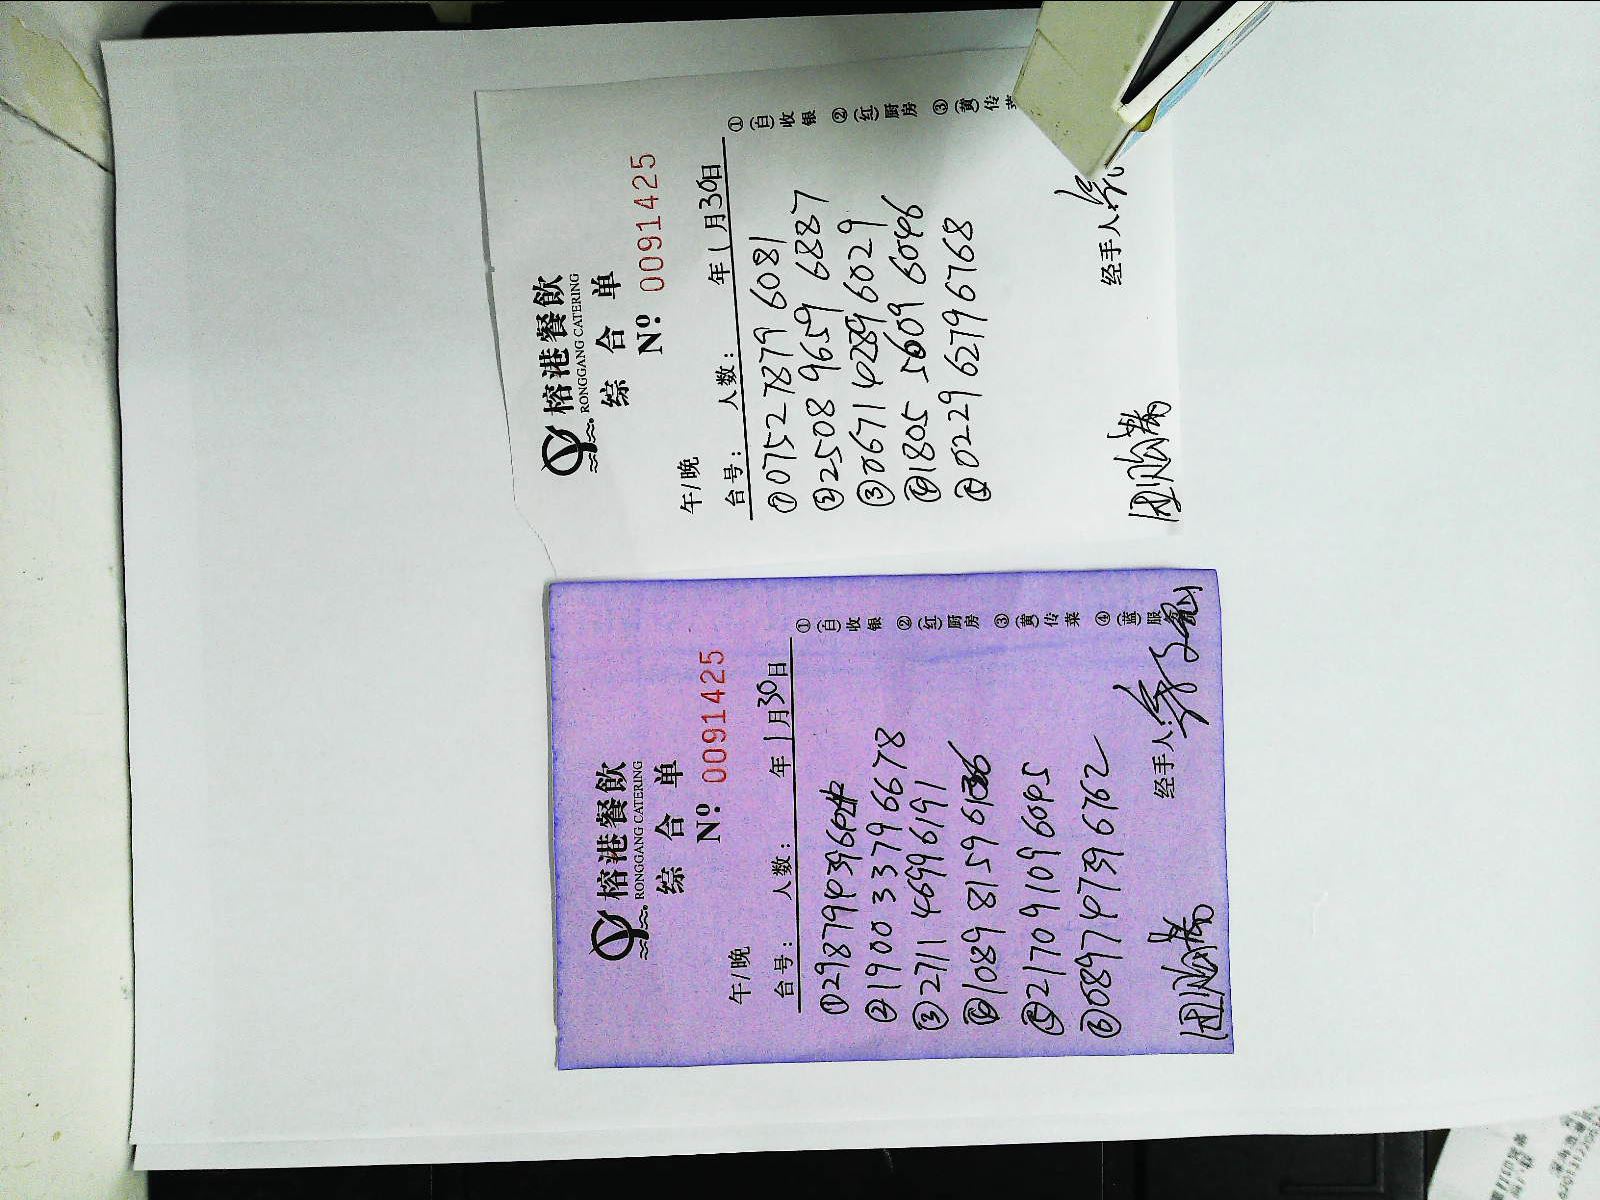 榕港餐飲
RONGGANG CATERING
综合单
Nº: 0091425
午/晚
台号: 人数: 年 1月30日
①0752 7879 6081
②2508 9659 6887
③0671 4289 6029
④1805 5609 6046
⑤0229 6279 6768
经手人
团购
①(白)收银 ②(红)厨房 ③(黄)传菜
榕港餐飲
RONGGANG CATERING
综合单
Nº: 0091425
午/晚
台号: 人数: 年 1月30日
①0298 7994 396
②1900 3379 6678
③2711 4699 6191
④1089 8159 6136
⑤2170 9109 6045
⑥0897 4739 6762
经手人:
团购
①(白)收银 ②(红)厨房 ③(黄)传菜 ④(蓝)服